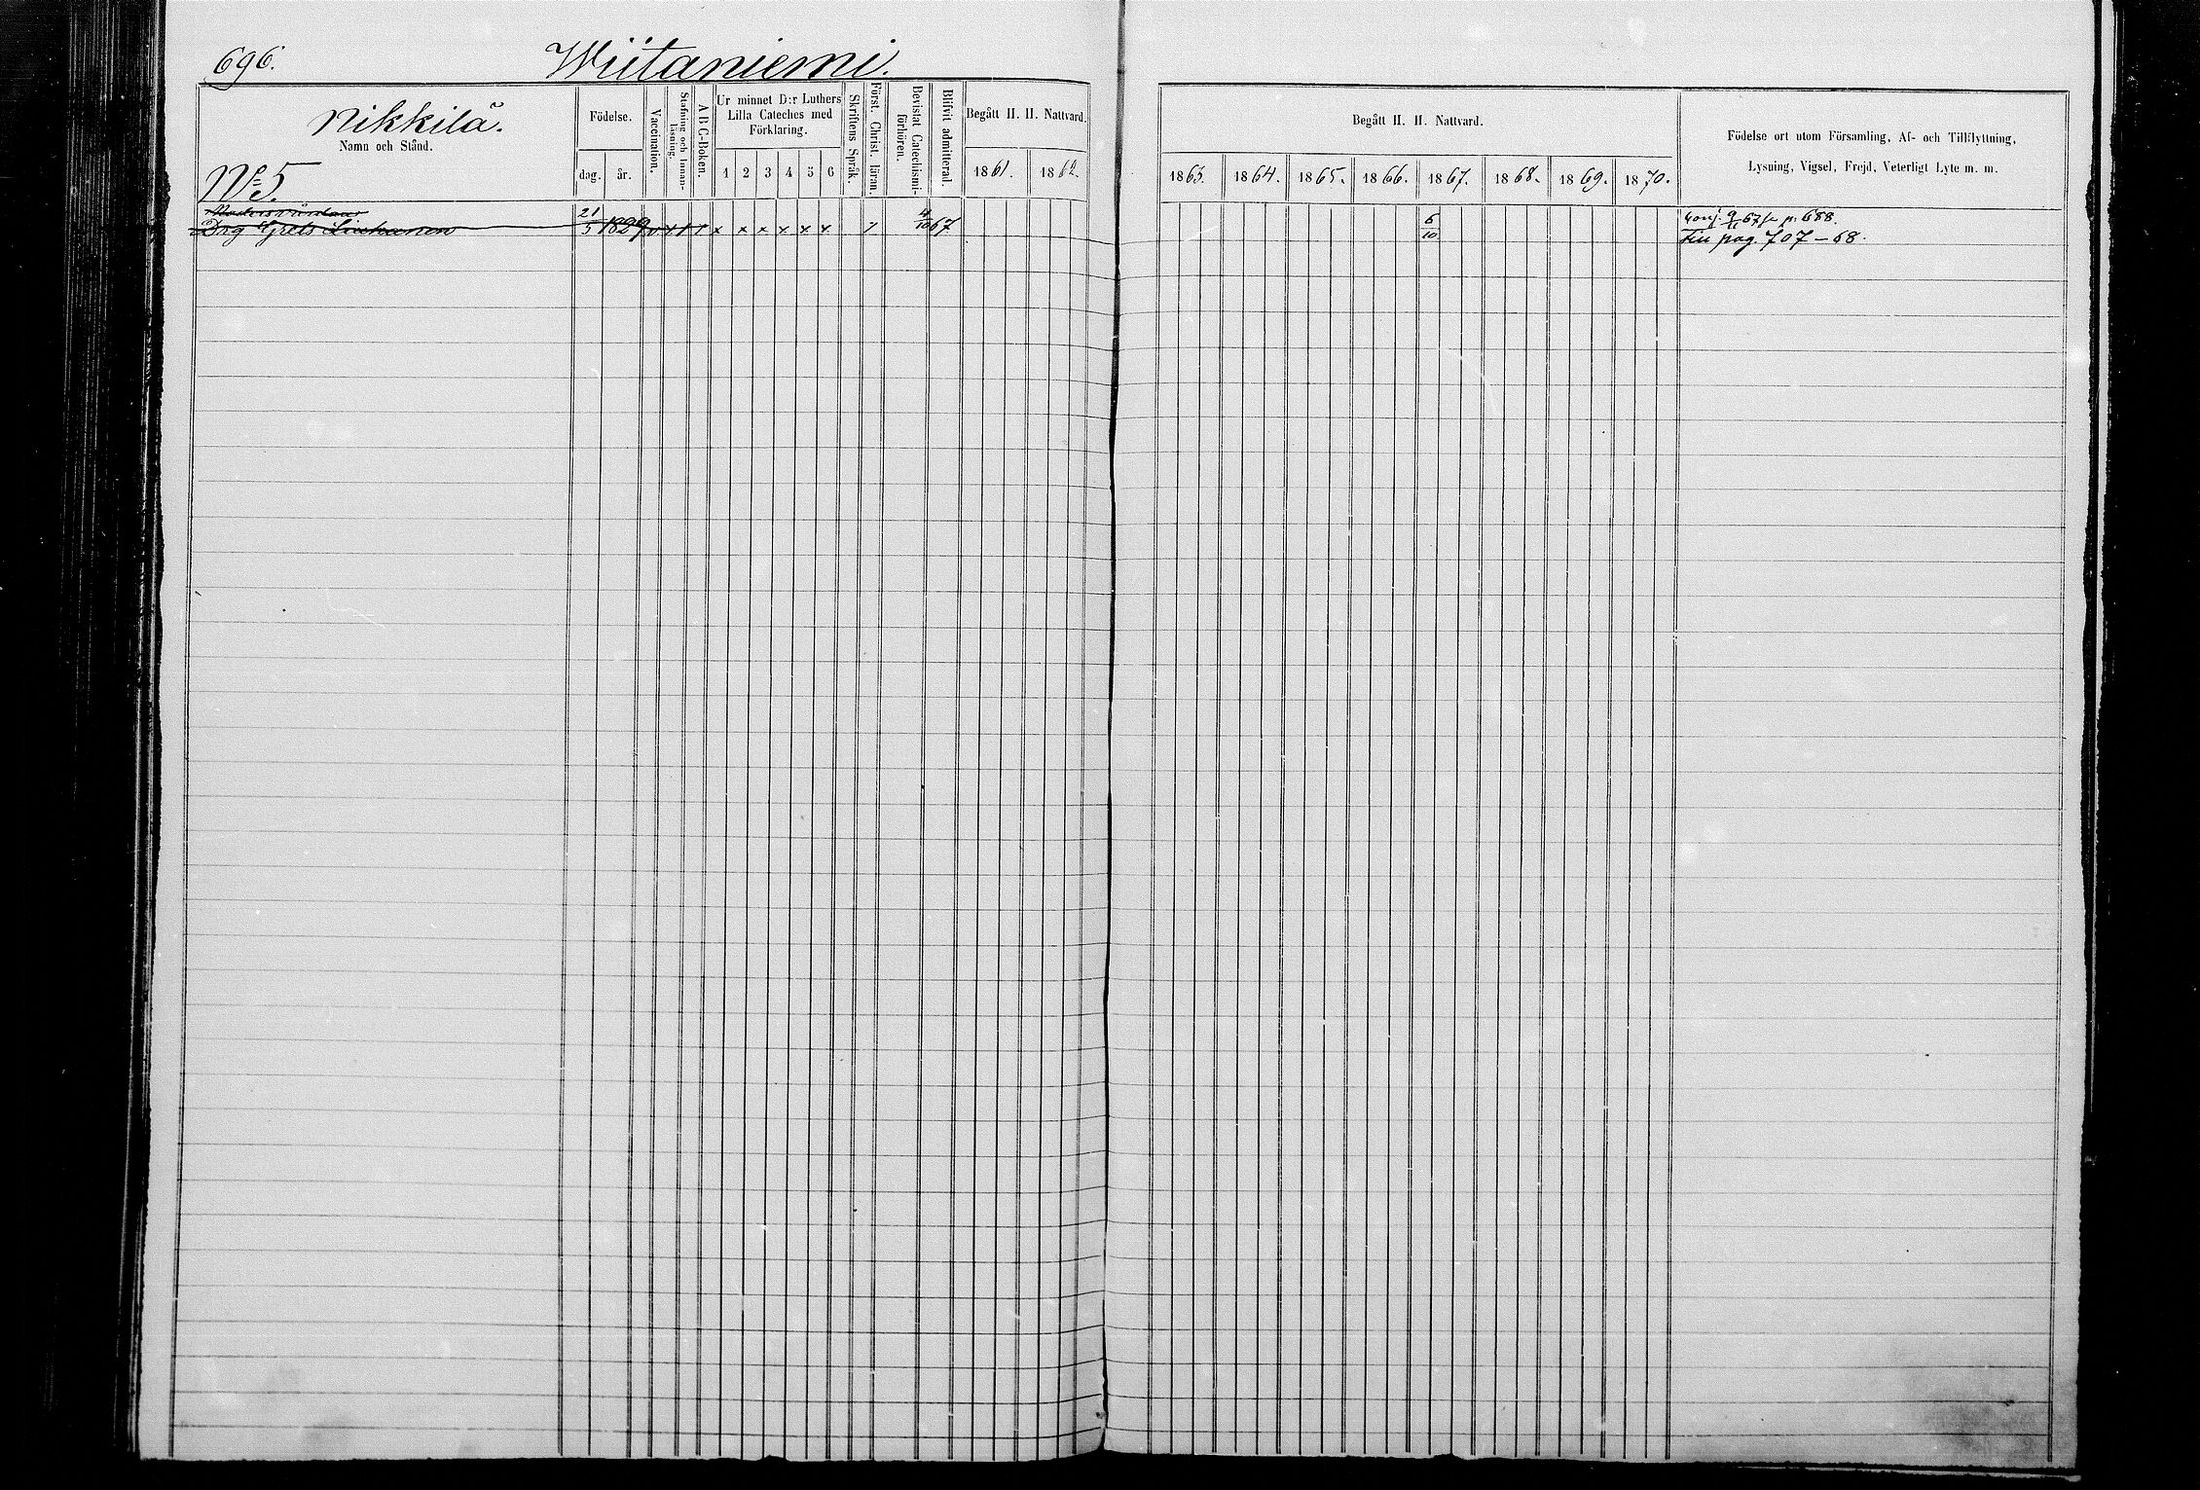 696. Wiitaniemi.
Nikkilä.
Namn och Stånd.
No 5.
Födelse.
dag. år.
Vaccination.
Stafning och Innanläsning.
A B C-Boken.
Ur minnet D:r Luthers
Lilla Cateches med
Förklaring.
1 2 3 4 5 6
Skriftens Språk.
Först. Christ. läran.
Bevistat Catechismiförhören.
Blifvit admitterad.
Begått H. H. Nattvard.
1861. 1862.
Begått H. H. Nattvard.
1863. 1864. 1865. 1866. 1867. 1868. 1869. 1870.
Födelse ort utom Församling, Af- och Tillflyttning,
Lysning, Vigsel, Frejd, Veterligt Lyte m. m.
Drg Grels 21/5 1829 v x x x x x x x 4/10 67 6/10
Conj. 9/11 67 fr p. 688.
till pag. 707 – 68.